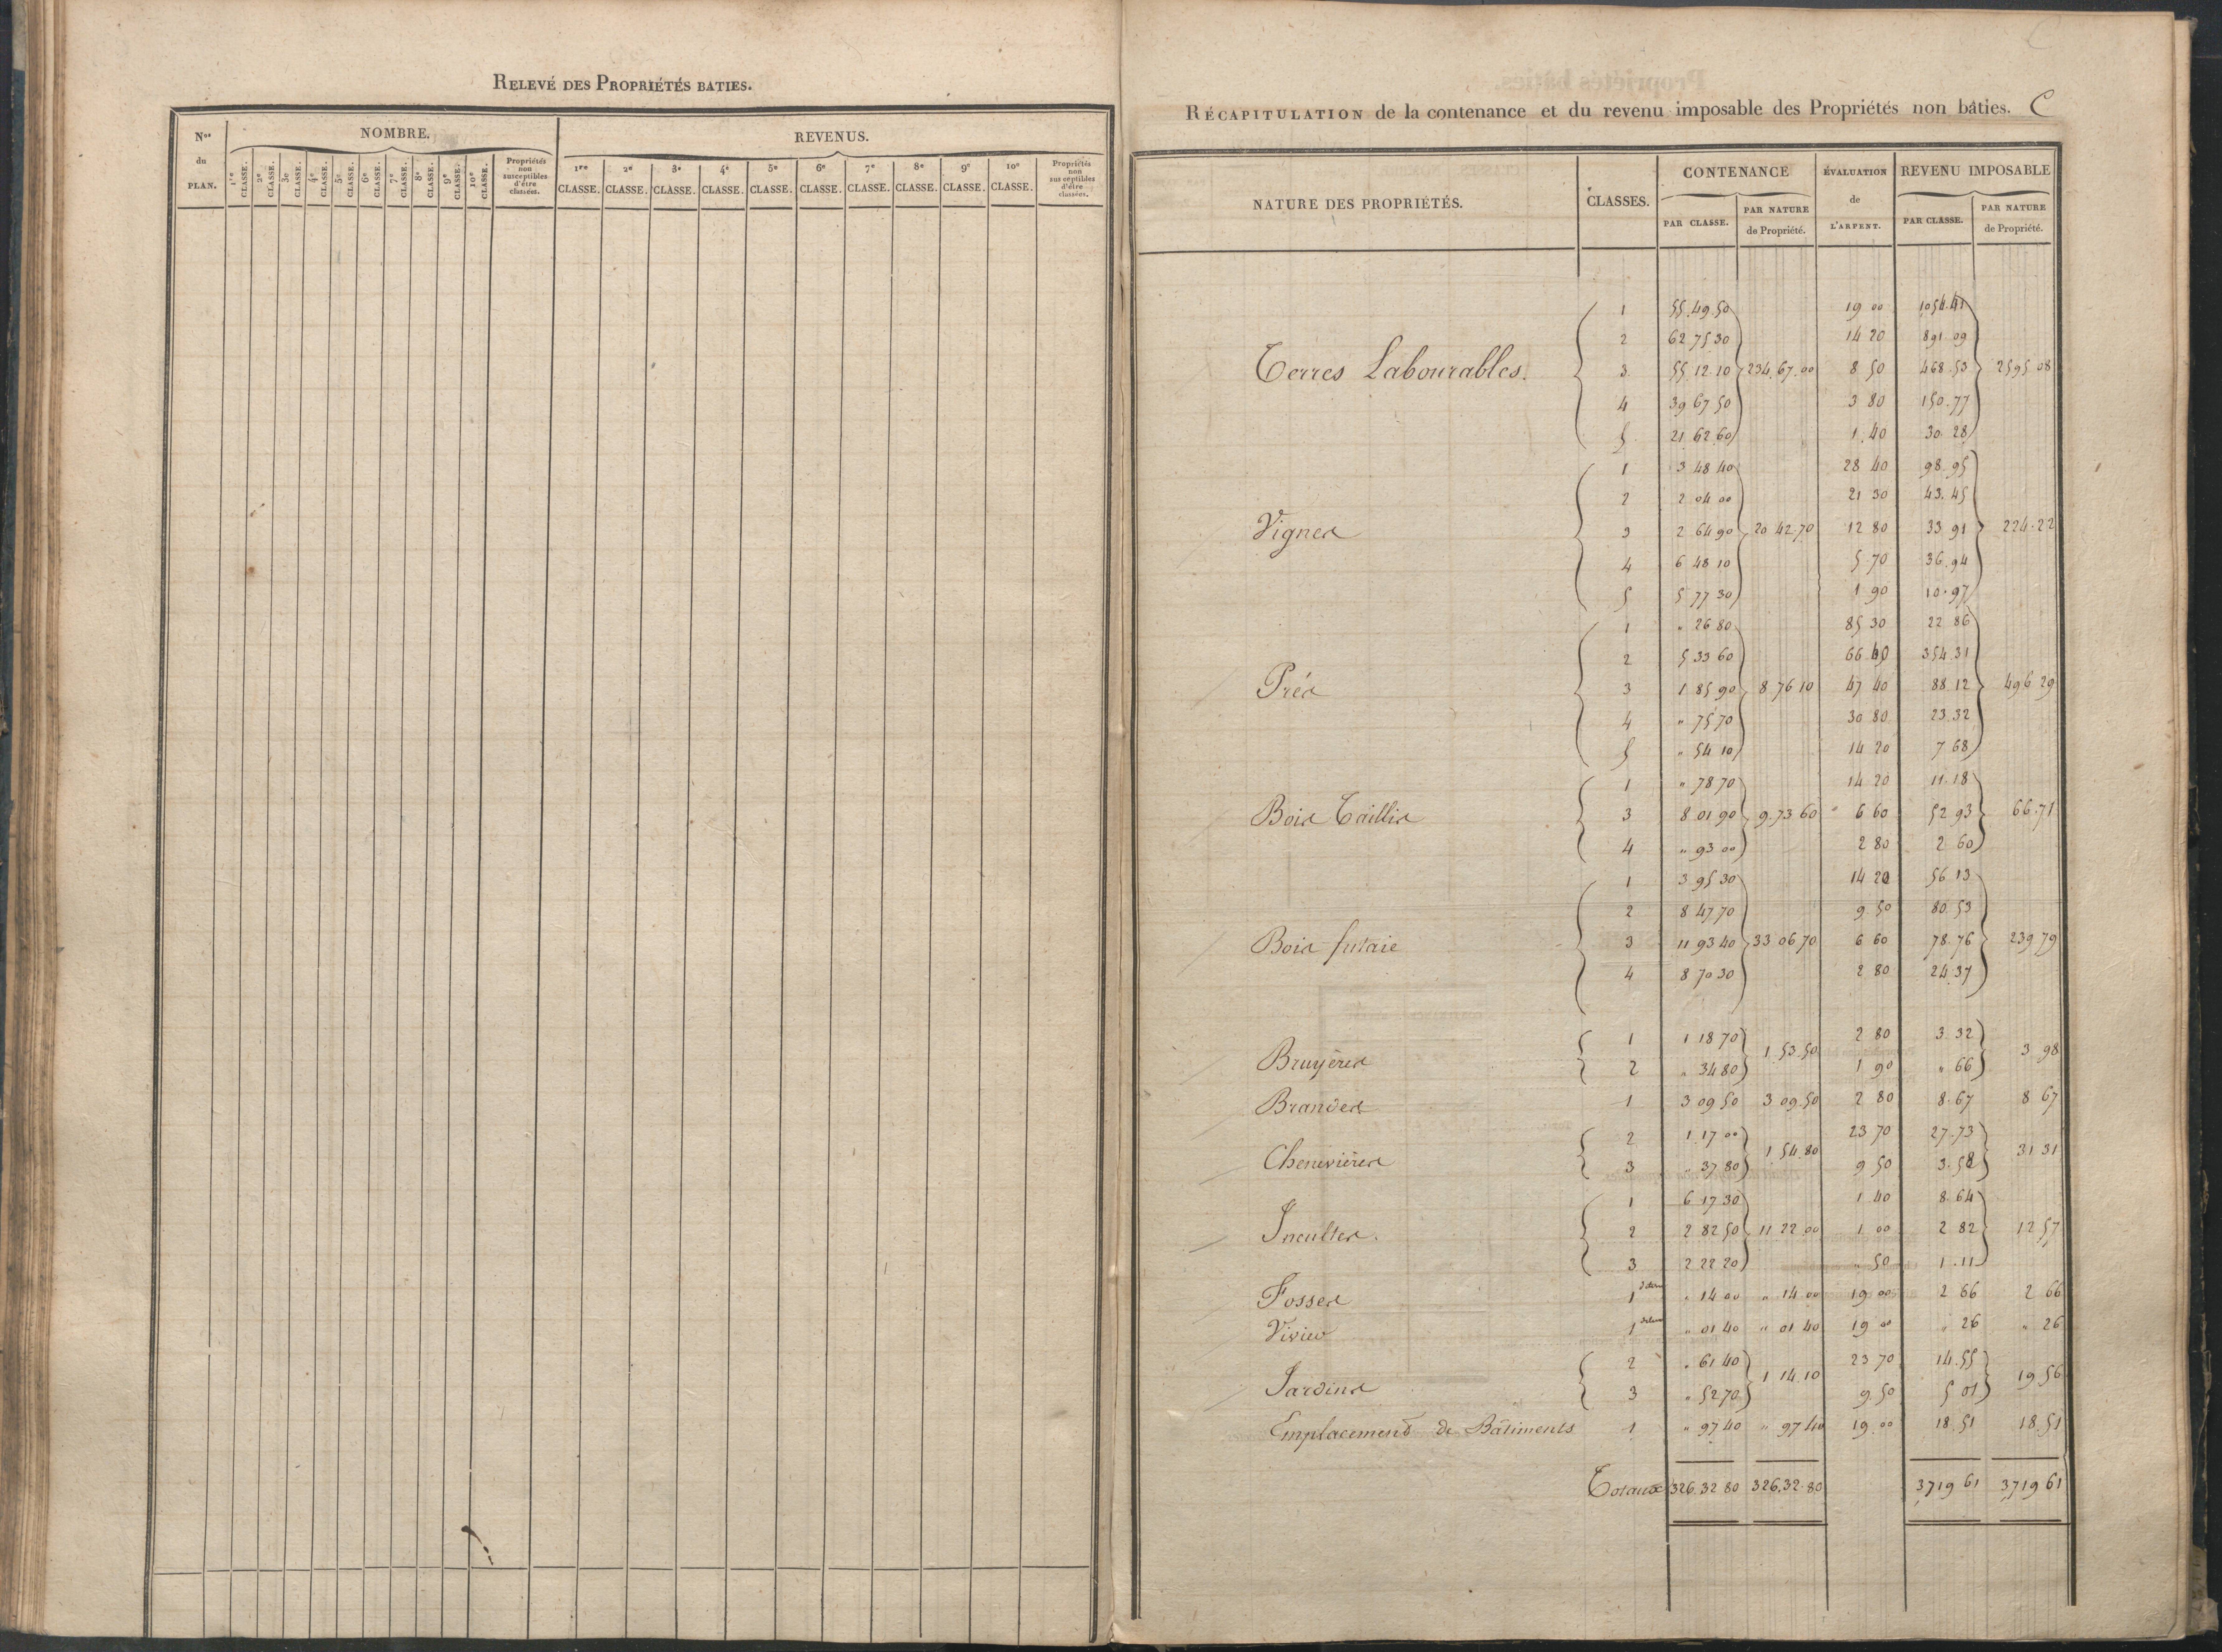 RELEVÉ DES PROPRIÉTÉS BATIES.
Nos du PLAN.
NOMBRE.
1re CLASSE. 2e CLASSE. 3e CLASSE. 4e CLASSE. 5e CLASSE. 6e CLASSE. 7e CLASSE. 8e CLASSE. 9e CLASSE. 10e CLASSE. Propriétés non susceptibles d'être classées.
REVENUS.
1re CLASSE. 2e CLASSE. 3e CLASSE. 4e CLASSE. 5e CLASSE. 6e CLASSE. 7e CLASSE. 8e CLASSE. 9e CLASSE. 10e CLASSE. Propriétés non susceptibles d'être classées.
RÉCAPITULATION de la contenance et du revenu imposable des Propriétés non bâties. C
NATURE DES PROPRIÉTÉS. CLASSES. CONTENANCE ÉVALUATION de L'ARPENT. REVENU IMPOSABLE
PAR CLASSE. PAR NATURE de Propriété. PAR CLASSE. PAR NATURE de Propriété.
1 55.49.50 19 00 1054.41
2 62 75 30 14 20 891 09
Terres Labourables. 3 55.12.10 234.67.00 8 50 468.53 2595 08
4 39 67 50 3 80 150.77
5 21 62 60 1.40 30 28
1 3 48 40 28 40 98.95
2 2 04 00 21 30 43.45
Vignes 3 2 64 90 20 42.70 12 80 33 91 224.22
4 6 48 10 5 70 36.94
5 5 77 30 1 90 10.97
1 " 26 80 85 30 22 86
2 5 33 60 66 40 354.31
Prés 3 1 85 90 8 76 10 47 40 88.12 496 29
4 " 75 70 30 80 23.32
5 " 54 10 14 20 7 68
1 " 78 70 14 20 11.18
Bois Taillis 3 8 01 90 9.73 60 6 60 52 93 66.71
4 " 93 00 2 80 2 60
1 3 95 30 14 20 56 13
2 8 47 70 9 50 80.53
Bois futaie 3 11 93 40 33 06 70 6 60 78.76 239 79
4 8 70 30 2 80 24 37
1 1 18 70 2 80 3.32
Bruyères 1.53.50 3 98
2 " 34 80 1 90 " 66
Brandes 1 3 09 50 3 09.50 2 80 8.67 8 67
2 1.17 00 23 70 27.73
Chenevières 1 54.80 31 31
3 " 37 80 9 50 3.58
1 6 17 30 1 40 8.64
Incultes. 2 2 82 50 11 22 00 1 00 2 82 12 57
3 2 22 20 " 50 1.11
Fosses 1 " 14 00 " 14 00 19 00 2 66 2 66
Vivier 1 " 01 40 " 01 40 19 00 " 26 " 26
2 " 61 40 23 70 14.55
Jardins 1 14.10 19 56
3 " 52 70 9.50 5 01
Emplacement de Bâtiments 1 " 97 40 " 97 40 19 00 18.51 18.51
Totaux 326.32 80 326.32.80 3719 61 3719 61